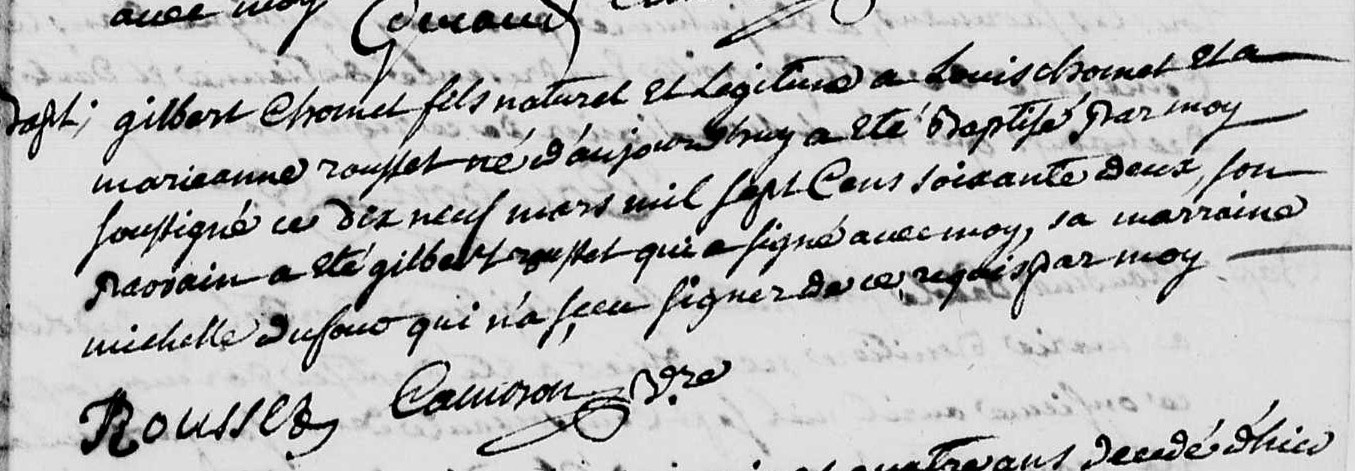 avec moy
Bapt; gilbert Chomet fils naturel et Legitime a Louis chomet Et a
marieanne rousset né d'aujourdhuy a Eté Baptisé par moy
soussigné ce dix neuf mars mil sept Cens soixante deux, son
parrain a Eté gilbert rousset qui a signé avec moy, sa marraine
michelle dufour qui n'a sceu signer de ce requis par moy
ROUSSET
quatre ans decedé d'hier